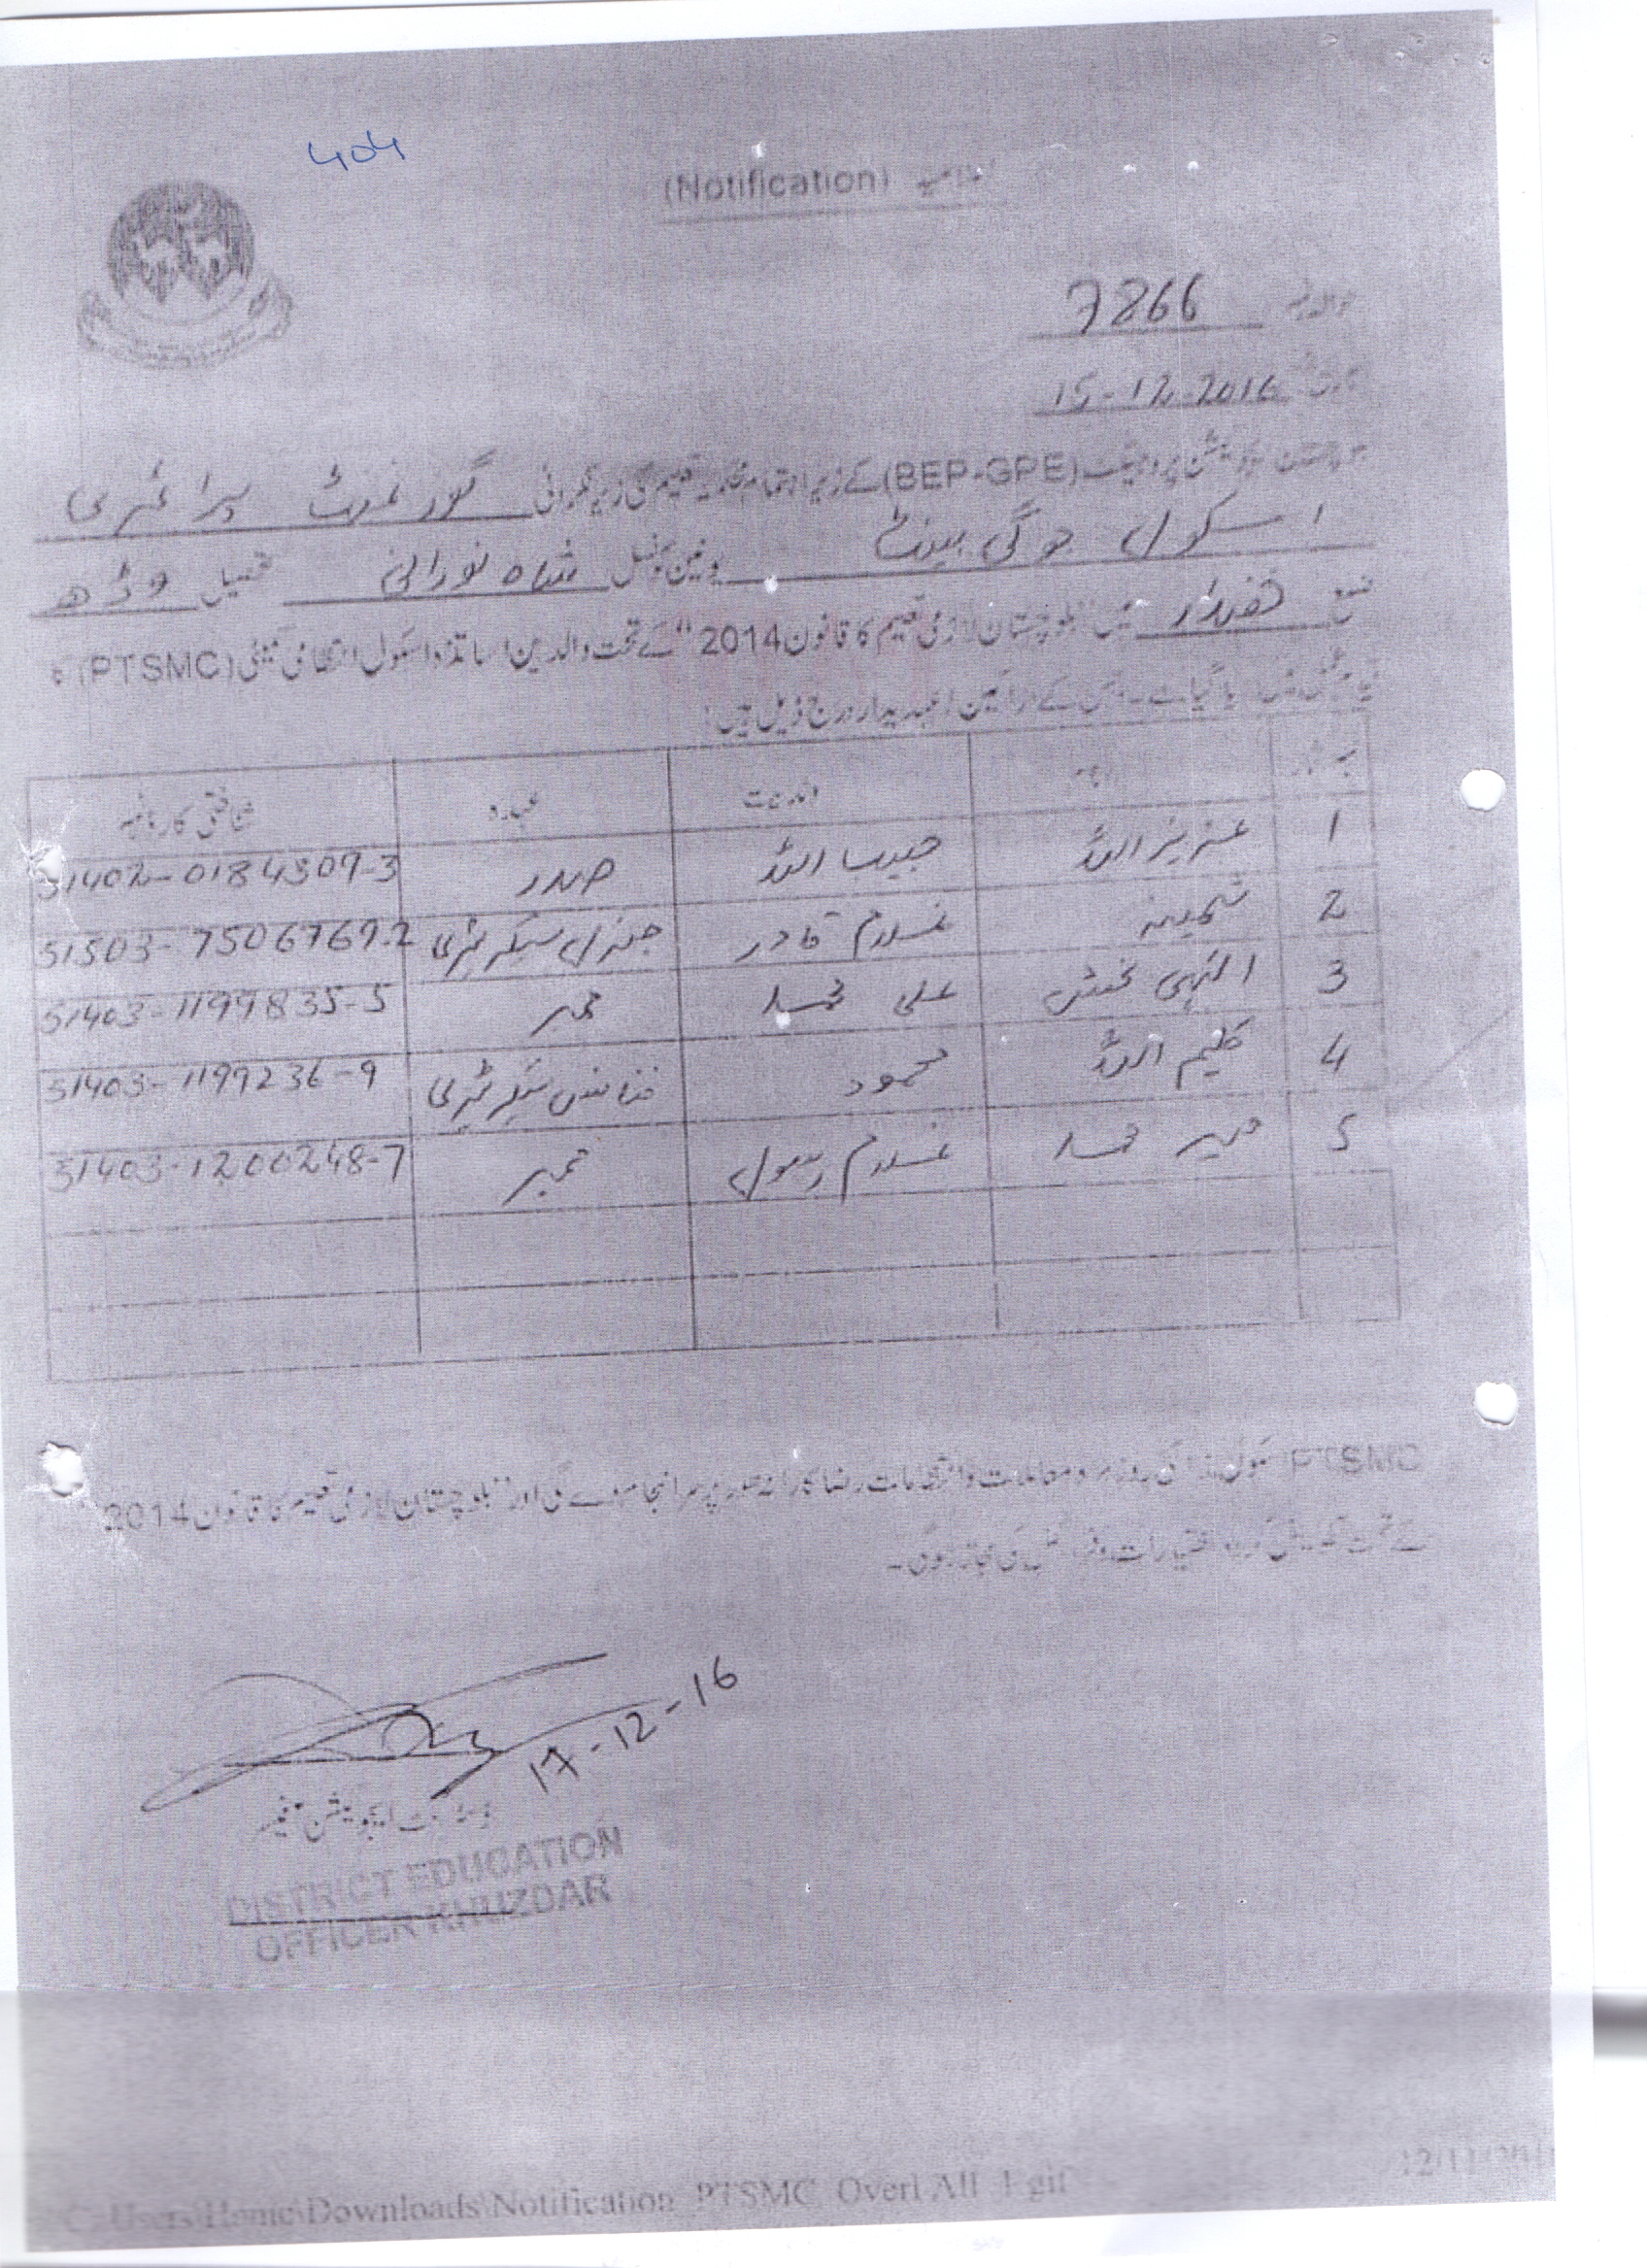 404
(Notification)
7866
15-12-2016
(BEP-GPE) کے زیر اہتمام محکمہ تعلیم کی زیر نگرانی گورنمنٹ پرائمری
اسکول جوگی بینٹ یونین کونسل شاہ نورانی تحصیل وڈھ
ضلع خضدار میں "بلوچستان لازمی تعلیم کا قانون 2014" کے تحت والدین اساتذہ اسکول انتظامی کمیٹی (PTSMC) کا
گیا ہے۔ جس کے اراکین / عہدیدار درج ذیل ہیں:
ولدیت عہدہ شناختی کارڈ نمبر
1 عزیز اللہ حبیب اللہ صدر 51402-0184509-3
2 ثمینہ غلام قادر جنرل سیکرٹری 51503-7506769-2
3 الہی بخش علی محمد ممبر 51403-1199835-5
4 کلیم اللہ محمود فنانس سیکرٹری 51403-1199236-9
5 محمد غلام رسول ممبر 51403-1200248-7
PTSMC روزمرہ معاملات و انتظامات رضاکارانہ طور پر سرانجام دے گی اور "بلوچستان لازمی تعلیم کا قانون 2014
کے تحت اختیارات کی مجاز ہوگی۔
17-12-16
ڈسٹرکٹ ایجوکیشن آفیسر
DISTRICT EDUCATION
OFFICER KHUZDAR
C:\Users\Home\Downloads\Notification PTSMC Overl All 1.gif